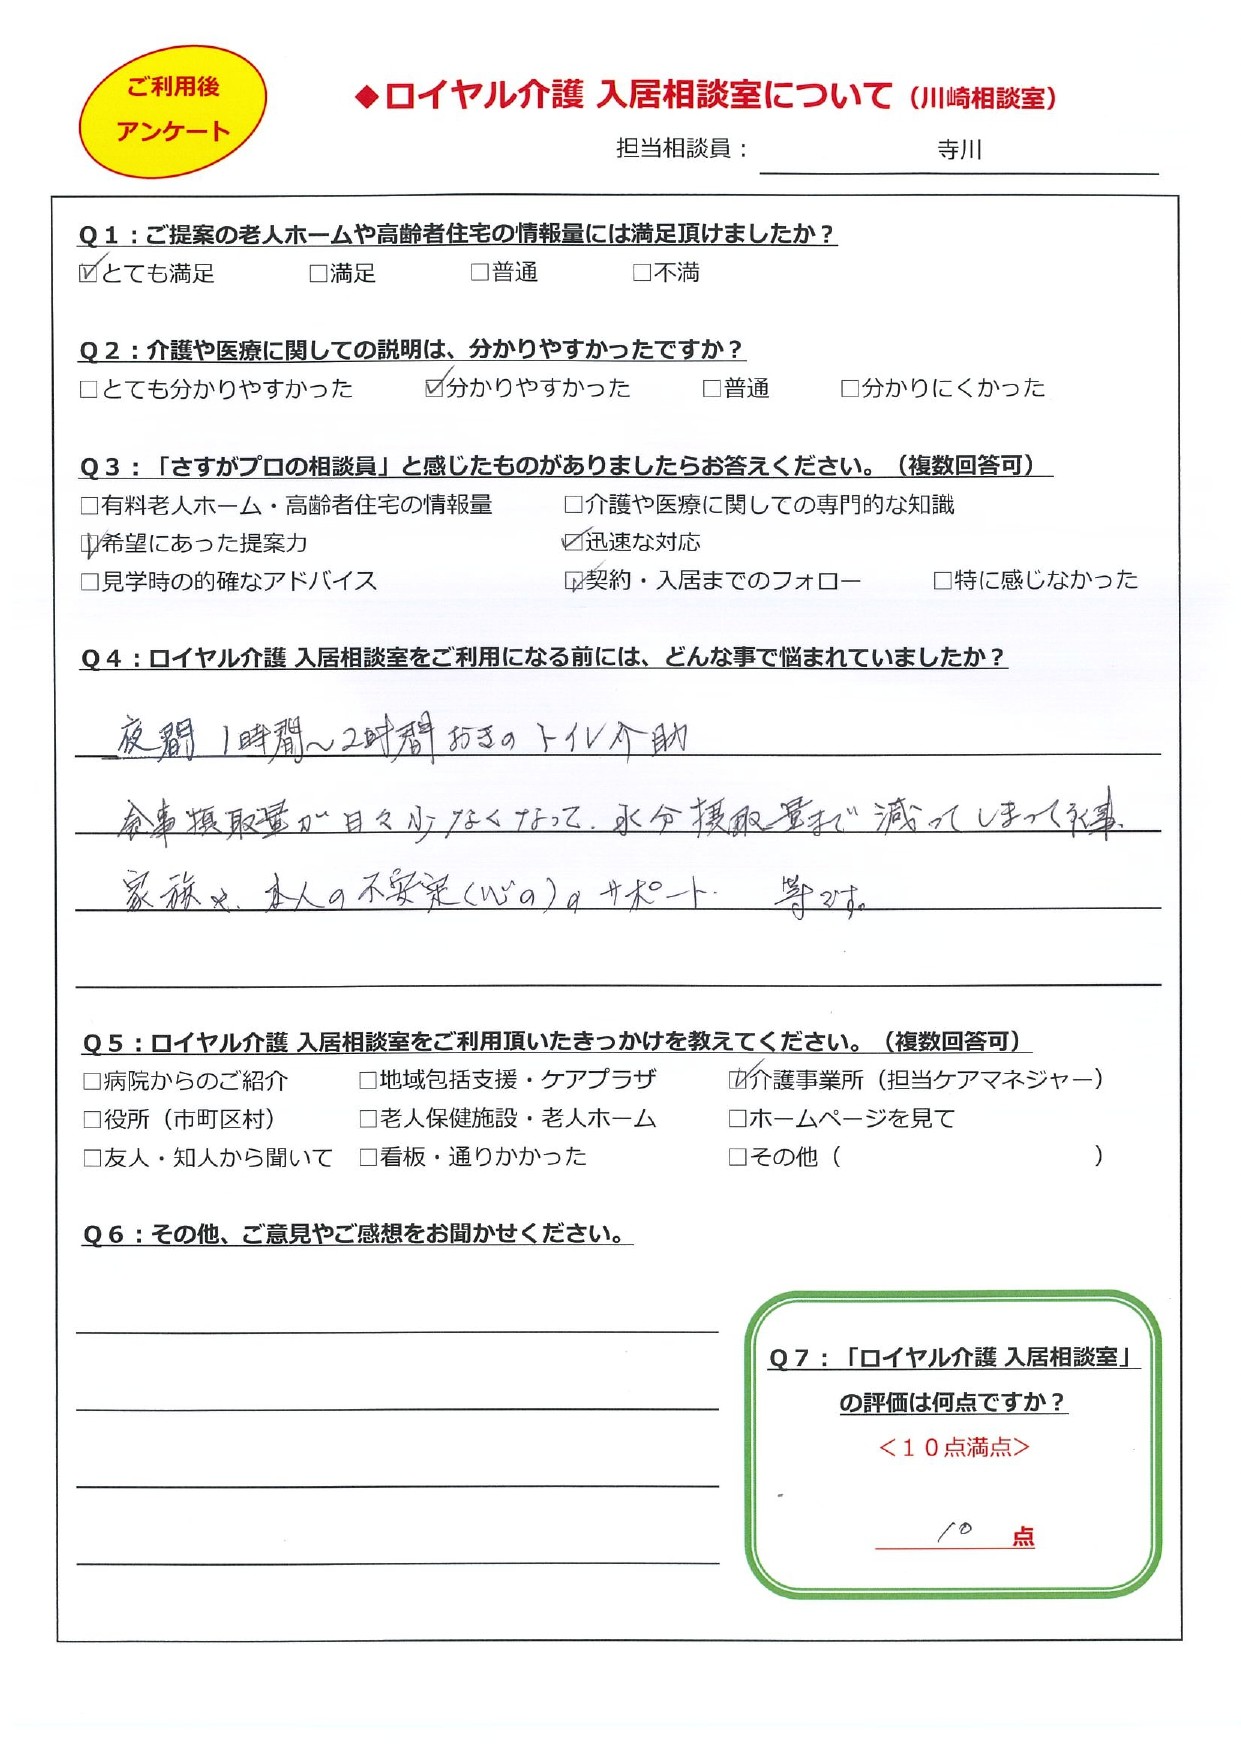 ご利用後
アンケート
◆ロイヤル介護 入居相談室について（川崎相談室）
担当相談員： 寺川
Ｑ１：ご提案の老人ホームや高齢者住宅の情報量には満足頂けましたか？
☑とても満足 □満足 □普通 □不満
Ｑ２：介護や医療に関しての説明は、分かりやすかったですか？
□とても分かりやすかった ☑分かりやすかった □普通 □分かりにくかった
Ｑ３：「さすがプロの相談員」と感じたものがありましたらお答えください。（複数回答可）
□有料老人ホーム・高齢者住宅の情報量 □介護や医療に関しての専門的な知識
☑希望にあった提案力 ☑迅速な対応
□見学時の的確なアドバイス ☑契約・入居までのフォロー □特に感じなかった
Ｑ４：ロイヤル介護 入居相談室をご利用になる前には、どんな事で悩まれていましたか？
夜間 1時間～2時間おきのトイレ介助
食事摂取量が日々少なくなって、水分摂取量まで減ってしまって来た事、
家族や、本人の不安定（心の）のサポート 等です。
Ｑ５：ロイヤル介護 入居相談室をご利用頂いたきっかけを教えてください。（複数回答可）
□病院からのご紹介 □地域包括支援・ケアプラザ ☑介護事業所（担当ケアマネジャー）
□役所（市町区村） □老人保健施設・老人ホーム □ホームページを見て
□友人・知人から聞いて □看板・通りかかった □その他（ ）
Ｑ６：その他、ご意見やご感想をお聞かせください。
Ｑ７：「ロイヤル介護 入居相談室」
の評価は何点ですか？
＜１０点満点＞
10 点